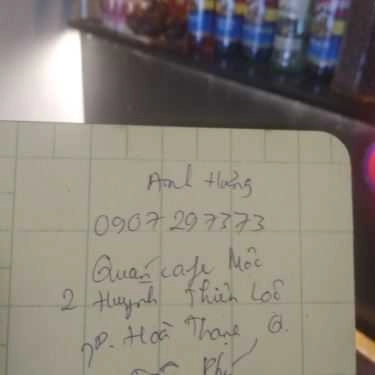 Anh Hưng
0907 297373
Quán cafe Mộc
2 Huỳnh Thiện Lộc
P. Hoà Thạnh Q.
Phú